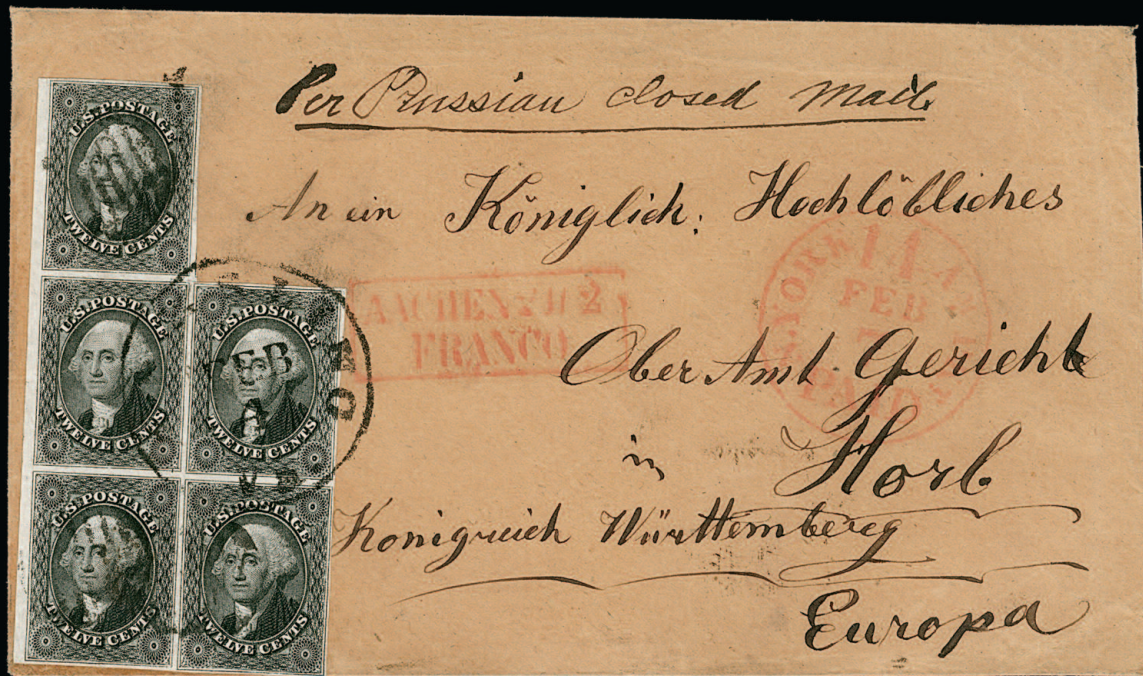 Per Prussian closed Mail
An ein Königlich. Hochlöbliches
Ober Amt Gericht
in Horb
Konigreich Württemberg
Europa
U.S. POSTAGE
TWELVE CENTS
U.S. POSTAGE
TWELVE CENTS
U.S. POSTAGE
TWELVE CENTS
U.S. POSTAGE
TWELVE CENTS
U.S. POSTAGE
TWELVE CENTS
FEB
AACHEN 2
FRANCO
YORK
11
FEB
PAID